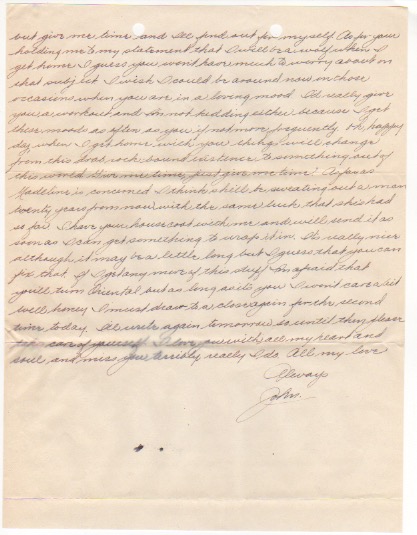 but give me time and I'll find out for myself. As for your
holding me to my statement that I will be a wolf when I
get home I guess you won't have much to worry about on
that subject. I wish I could be around now on those
occasions when you are in a loving mood. I'd really give
you a workout and I'm not kidding either because I get
these moods as often as you if not more frequently. Oh, happy
day when I get home with you things will change
from this drab, rock bound existence to something out of
this world. Give me time, just give me time! As far as
Madeline is concerned I think she'll be sweating out a man
twenty years from now with the same luck that she's had
so far. I have your house coat with me and will send it as
soon as I can get something to wrap it in. It's really nice
although it may be a little long but I guess that you can
fix that. If I get any more of this stuff I'm afraid that
you'll turn Oriental but as long as it's you I won't care a bit
Well honey I must draw to a close again for the second
time today. I'll write again tomorrow so until then please
take care of yourself. I love you with all my heart and
soul and miss you terribly really I do. All my love
Always
John.